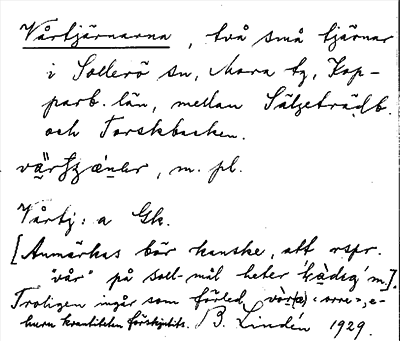 Vårtjärnarna, två små tjärnar
i Sollerö sn, Mora tg, Kop-
parb. län, mellan Sälgeträdb.
och Torskbacken.
, m. pl.
Vårtj: a Gk.
[Anmärkas bör kanske, att rspr.
"vår" på soll-mål heter m.].
Troligen ingår som förled vòr(a) : orre =, e-
huru kvantiteten förskjutits. B. Lindén 1929.